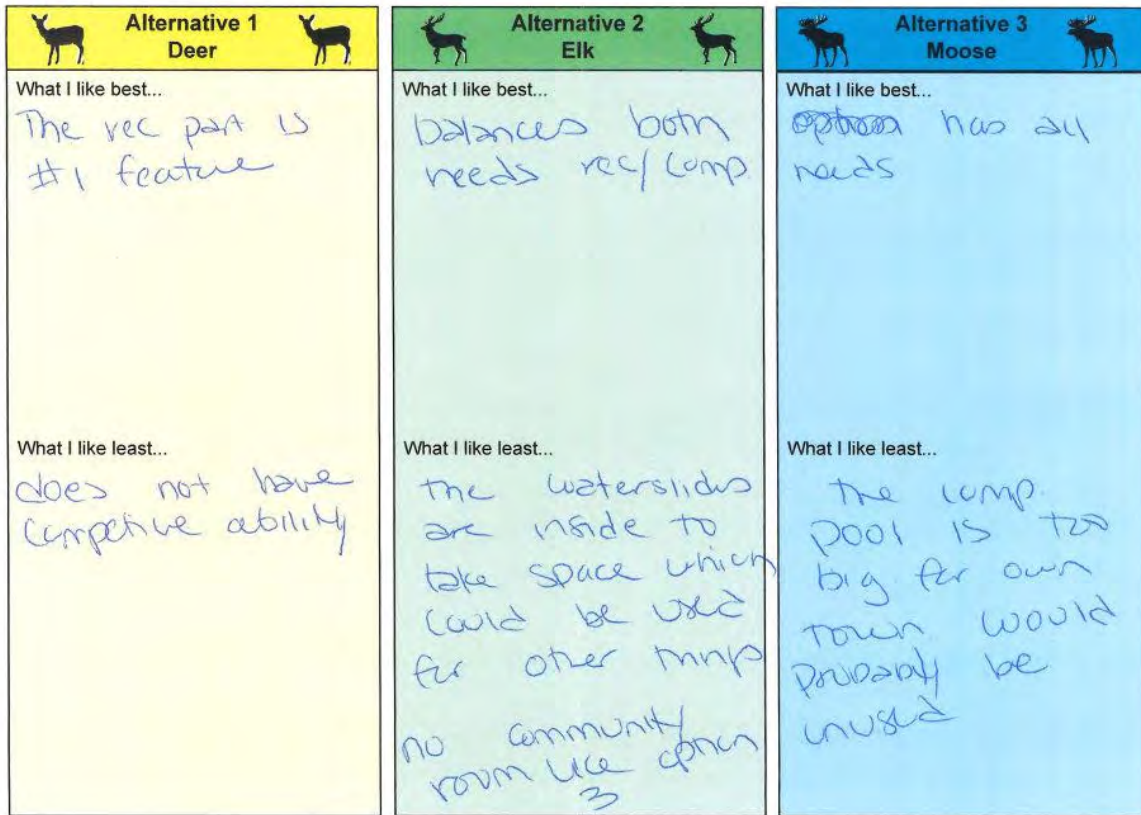 Alternative 1
Deer
What I like best...
The rec part is
#1 feature
What I like least...
does not have
competive ability
Alternative 2
Elk
What I like best...
balances both
needs rec/comp
What I like least...
the waterslides
are inside to
take space which
could be used
for other things
no community
room like option
3
Alternative 3
Moose
What I like best...
has all
needs
What I like least...
The comp.
pool is too
big for own
town would
probably be
unused